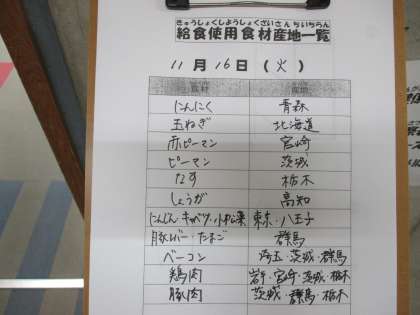 きゅうしょくしようしょくざいさんちいちらん
給食使用食材産地一覧
11月16日(火)
食材 産地
にんにく 青森
玉ねぎ 北海道
赤ピーマン 宮崎
ピーマン 茨城
なす 栃木
しょうが 高知
にんじん・キャベツ・小松菜 東京・八王子
豚レバー・たまご 群馬
ベーコン 埼玉・茨城・群馬
鶏肉 岩手・宮崎・茨城・栃木
豚肉 茨城・群馬・栃木